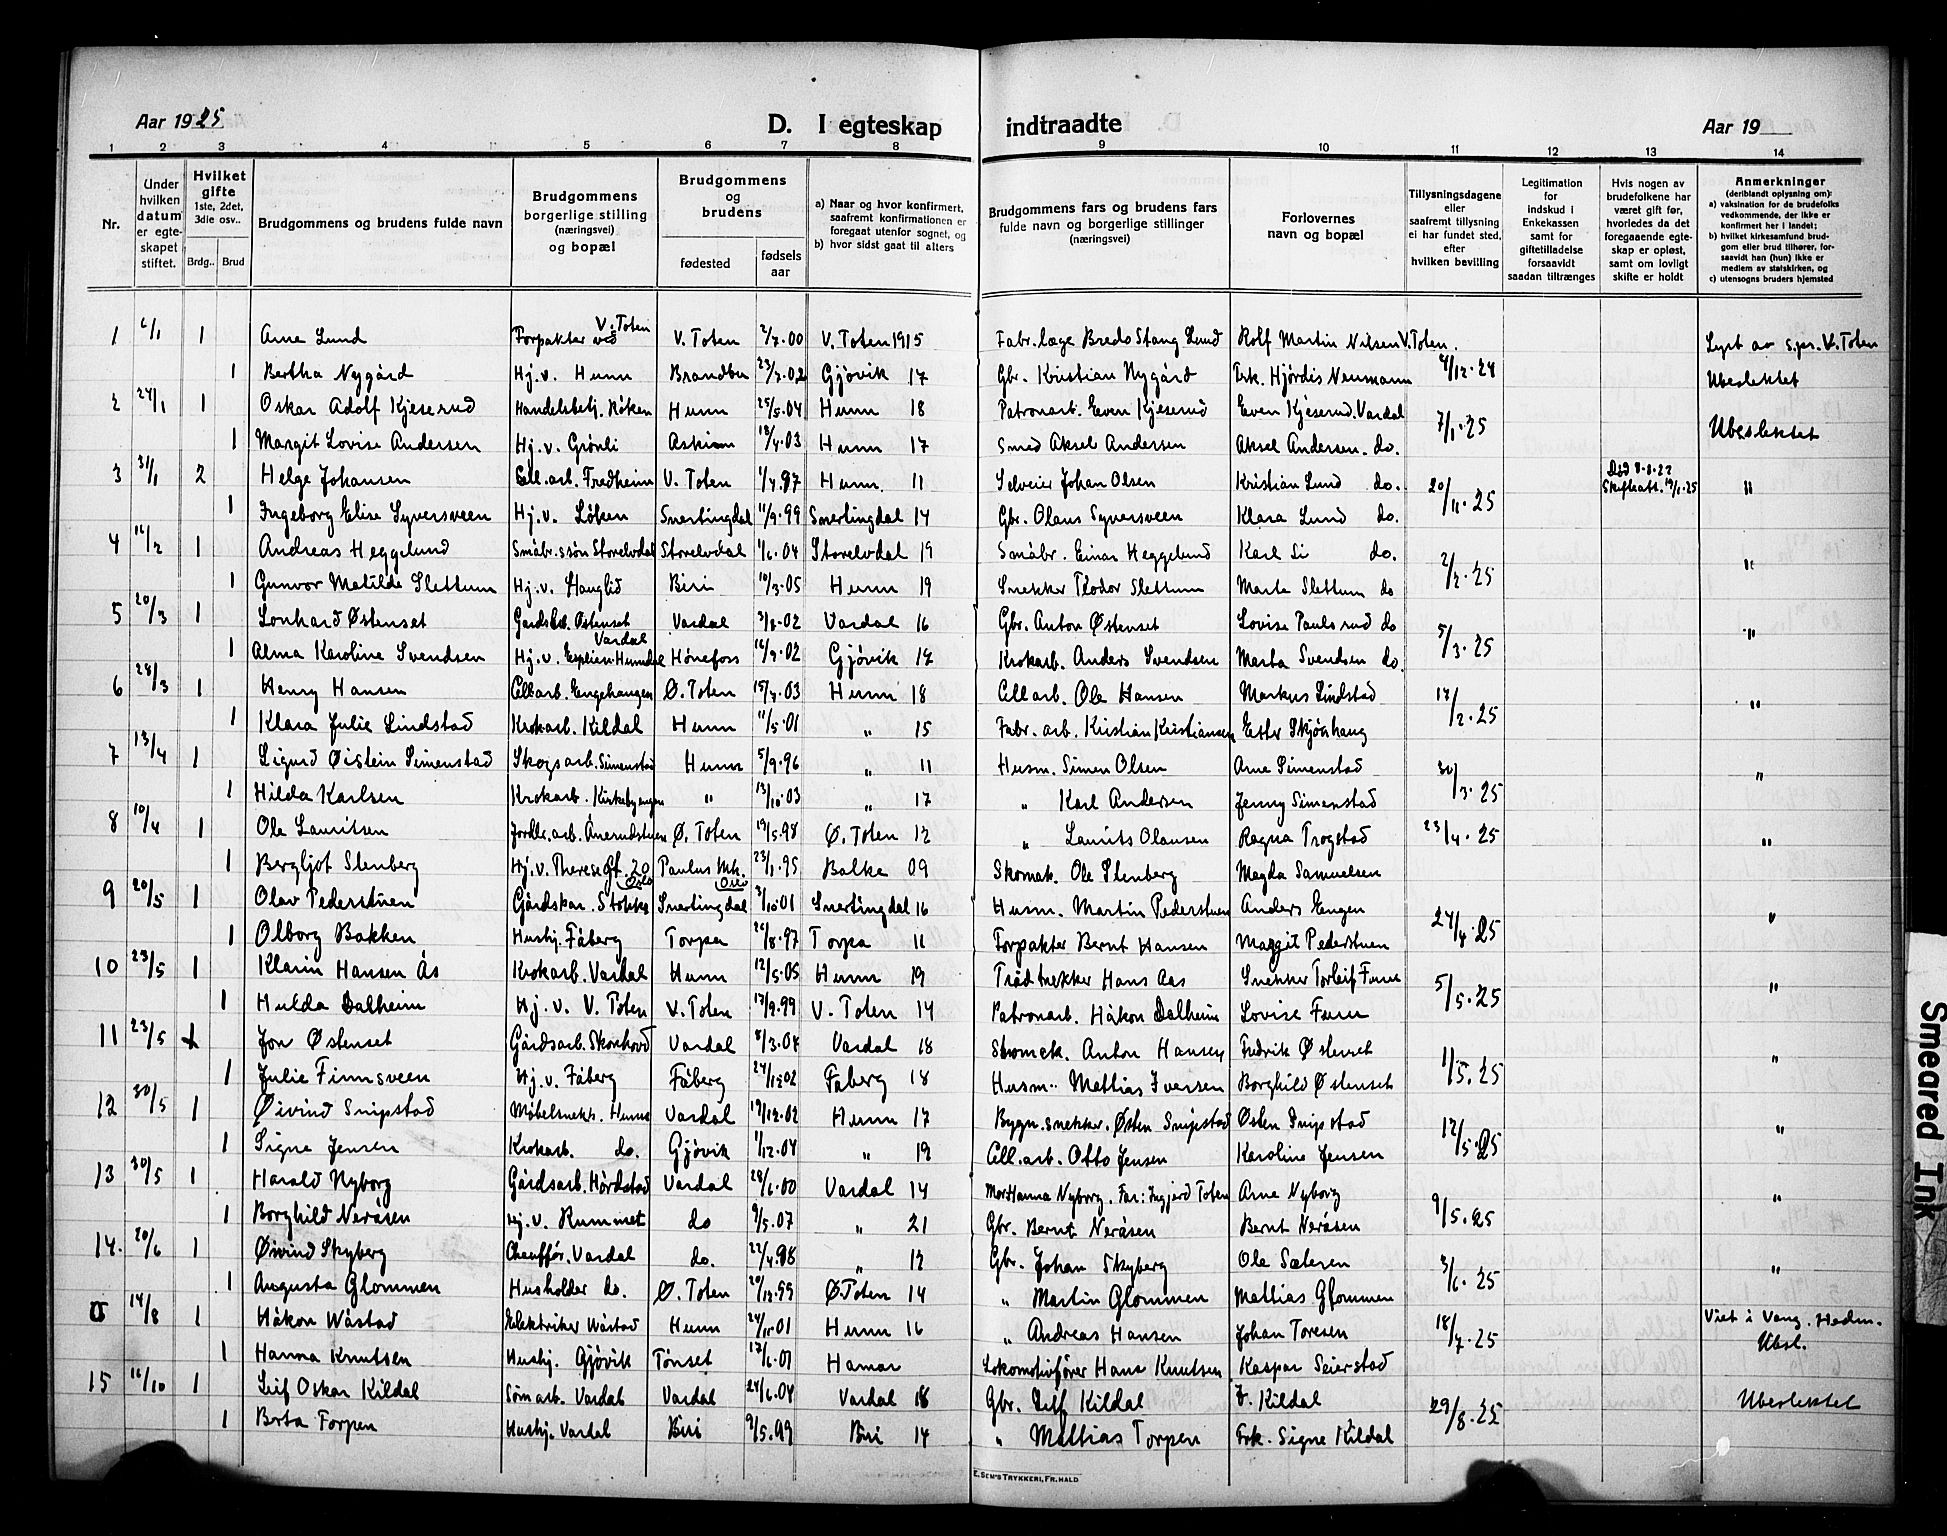 Aar 1925
D. I egteskap indtraadte
Aar 19
1 2 3 4 5 6 7 8 9 10 11 12 13 14
Nr.
Under hvilken datum er egteskapet stiftet.
Hvilket gifte 1ste, 2det, 3die osv..
Brdg.. Brud
Brudgommens og brudens fulde navn
Brudgommens borgerlige stilling (næringsvei) og bopæl
Brudgommens og brudens
fødested
fødsels aar
a) Naar og hvor konfirmert, saafremt konfirmationen er foregaat utenfor sognet, og
b) hvor sidst gaat til alters
Brudgommens fars og brudens fars fulde navn og borgerlige stillinger (næringsvei)
Forlovernes navn og bopæl
Tillysningsdagene eller saafremt tillysning ei har fundet sted, efter hvilken bevilling
Legitimation for indskud i Enkekassen samt for giftetilladelse forsaavidt saadan tiltrænges
Hvis nogen av brudefolkene har været gift før, hvorledes da det foregaaende egteskap er opløst, samt om lovligt skifte er holdt
Anmerkninger (deriblandt oplysning om):
a) vaksination for de brudefolks vedkommende, der ikke er konfirmert her i landet;
b) hvilket kirkesamfund brudgom eller brud tilhører, forsaavidt han (hun) ikke er medlem av statskirken, og
c) utensogns bruders hjemsted
1 6/1 1 Arne Lund Forpakter ved V. Toten V. Toten 2/7.00 V. Toten 1915 Fabr. læge Bredo Stang Lund Rolf Martin Nilsen V. Toten. 4/12.24 Lyst av s.pr. V. Toten
1 Bertha Nygård Hj.v. Hunn Brandbu 23/7.02 Gjøvik 17 Gbr. Kristian Nygård Frk. Hjørdis Neumann Ubeslektet
2 24/1 1 Oskar Adolf Kjeserud Handelsbetj. Røken Hunn 25/5.04 Hunn 18 Patronarb. Even Kjeserud Even Kjeserud. Vardal 7/1.25 Ubeslektet
1 Margit Lovise Andersen Hj.v. Grønli Askim 18/4.03 Hunn 17 Smed Aksel Andersen Aksel Andersen. do.
3 31/1 2 Helge Johansen Cell.arb. Fredheim V. Toten 1/4.97 Hunn. 11 Selveier Johan Olsen Kristian Lund do. 20/11.25 Død 8-8-22 Skifteatt. 19/1.25 "
1 Ingeborg Elise Syversveen Hj.v. Løken Snertingdal 11/9.99 Snertingdal 14 Gbr. Olaus Syversveen Klara Lund do.
4 16/2 1 Andreas Heggelund Småbr.søn Storelvdal Storelvdal 1/6.04 Storelvdal 19 Småbr. Einar Heggelund Karl Li do. 2/2.25 "
1 Gunvor Matilde Slettum Hj.v. Hauglid Biri 10/3.05 Hunn 19 Snekker Teodor Slettum Marta Slettum do
5 20/3 1 Lonhard Østenset Gardsbr. Østenset Vardal Vardal 3/8.02 Vardal 16 Gbr. Anton Østenset Lovise Paulsrud do 5/3.25 "
1 Alma Karoline Svendsen Hj.v. Hunndal Hønefoss 16/9.02 Gjøvik 17 Krokarb. Anders Svendsen Marta Svendsen do.
6 28/3 1 Henry Hansen Cellarb. Engehaugen Ø. Toten 15/7.03 Hunn 18 Cellarb. Ole Hansen Markus Lindstad 17/2.25 "
1 Klara Julie Lindstad Krokarb. Kildal Hunn 11/5.01 " 15 Fabr. arb. Kristian Kristiansen Ester Skjønhaug
7 13/4 1 Sigurd Øistein Simenstad Skogsarb. Simenstad Hunn 5/9.96 " 11 Husm. Simen Olsen Arne Simenstad 30/3.25 "
1 Hilda Karlsen Krokarb. Kirkebyengen " 13/10.03 " 17 " Karl Andersen Jenny Simenstad
8 10/4 1 Ole Lauritsen Jordbr.arb. Ånerudstuen Ø. Toten 19/5.98 Ø. Toten 12 " Laurits Olausen Ragna Trogstad 23/4.25 "
1 Bergljot Stenberg Hj.v. Therese Gt. 20 Oslo Paulus Mk. Oslo 23/1.95 Balke 09 Skomak. Ole Stenberg Magda Samuelsen
9 20/5 1 Olav Pederstuen Gårdskar. Stokke Snertingdal 3/10.01 Snertingdal 16 Husm. Martin Pederstuen Anders Engen 27/4.25 "
1 Olborg Bakken Hushj. Fåberg Torpa 26/8.97 Torpa 11 Forpakter Bernt Hansen Margit Pederstuen
10 23/5 1 Klarin Hansen Ås Krokarb. Vardal Hunn 12/5.05 Hunn 19 Trådtrekker Hans Aas Snekker Torleif Furu 5/5.25 "
1 Hulda Dalheim Hj.v. V. Toten V. Toten 17/9.99 V. Toten 14 Patronarb. Håkon Dalheim Lovise Furu
11 23/5 1 Jon Østenset Gårdsarb. Skonhovd Vardal 8/3.04 Vardal 18 Skomak. Anton Hansen Fredrik Østenset 1/5.25 "
1 Julie Finnsveen Hj.v. Fåberg Fåberg 24/12.02 Fåberg 18 Husm.. Mathias Iversen Borghild Østenset
12 30/5 1 Øivind Snipstad Møbelsnekk. Hunn Vardal 19/12.02 Hunn 17 Bygn.snekker. Østen Snipstad Østen Snipstad 12/5.25 "
1 Signe Jensen Krokarb. do. Gjøvik 1/12.04 " 19 Cell.arb. Otto Jensen Karoline Jensen
13 30/5 1 Harald Nyborg Gårdsarb. Hørdstad Vardal 28/6.00 Vardal 14 Mor Hanna Nyborg. Far: Toten Arne Nyborg 9/5.25 "
1 Borghild Neråsen Hj.v. Rummet do 9/5.07 " 21 Gbr. Bernt Neråsen Bernt Neråsen
14. 20/6 1 Øivind Skyberg Chauffør. Vardal do. 22/4.98 " 12 Gbr. Johan Skyberg Ole Sætesen 3/6.25 "
1 Augusta Glommen Husholder do. Ø. Toten 20/12.99 Ø. Toten 14 " Martin Glommen Mathias Glommen
14/8 1 Håkon Wåstad Elektriker Wåstad Hunn 24/11.01 Hunn 16 " Andreas Hansen Johan Toresen 18/7.25 Viet i Vang. Hedm. Ubesl.
1 Hanna Knutsen Hushj. Gjøvik Tønset 17/6.01 Hamar Lokomotivfører Hans Knutsen Kaspar Seierstad
15 16/10 1 Leif Oskar Kildal Tømarb. Vardal Vardal 24/6.04 Vardal 18 Gbr. Leif Kildal Z. Kildal 29/8.25 Ubeslektet
1 Berta Torpen Hushj. Vardal Biri 9/5.99 Biri 14 " Mathias Torpen Frk. Signe Kildal
E. SEM'S TRYKKERI, FR.HALD
Smeared Ink